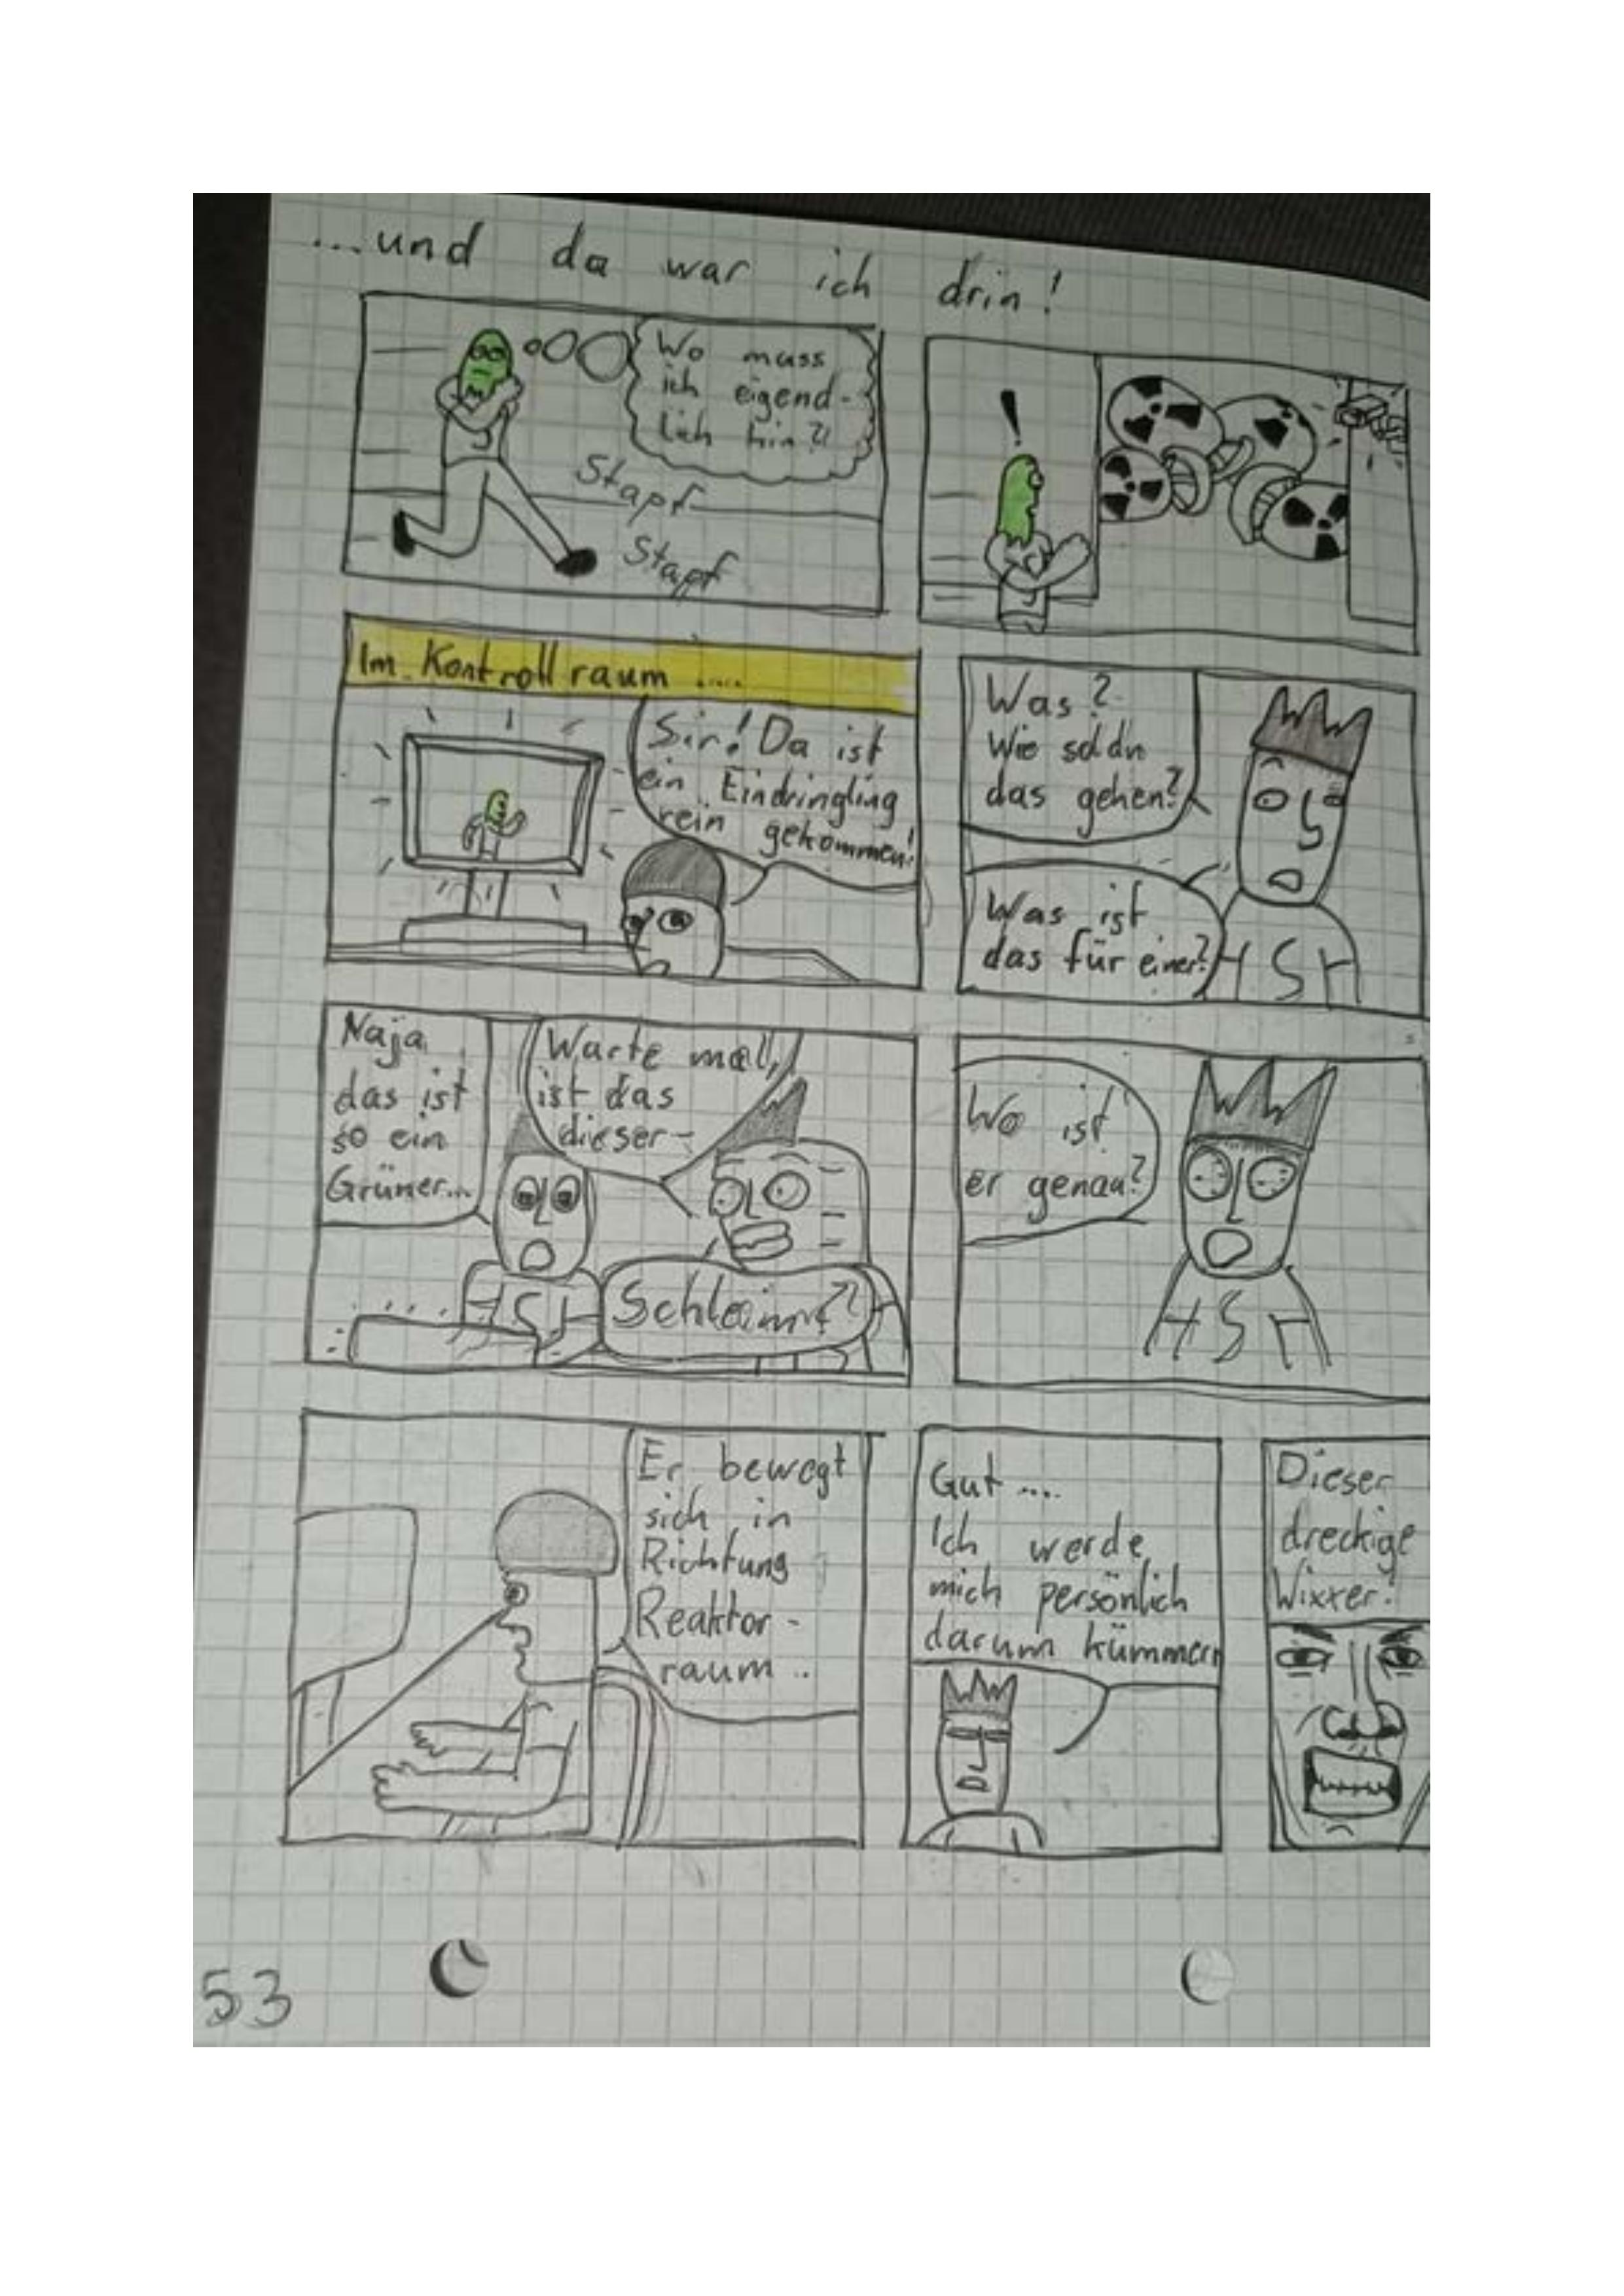 ...und da war ich drin!
Wo muss
ich eigend-
lich hin?!
Stapf
Stapf
!
Im Kontrollraum .....
Sir! Da ist
ein Eindringling
rein gekommen!
Was?
Wie solldn
das gehen?
Was ist
das für einer?
HSH
Naja
das ist
so ein
Grüner...
Warte mal,
ist das
dieser-
Schleim?!
HSH
Wo ist
er genau?
HSH
Er bewegt
sich in
Richtung
Reaktor-
raum ..
Gut ....
Ich werde
mich persönlich
darum kümmern
Dieser
dreckige
Wixxer!
53